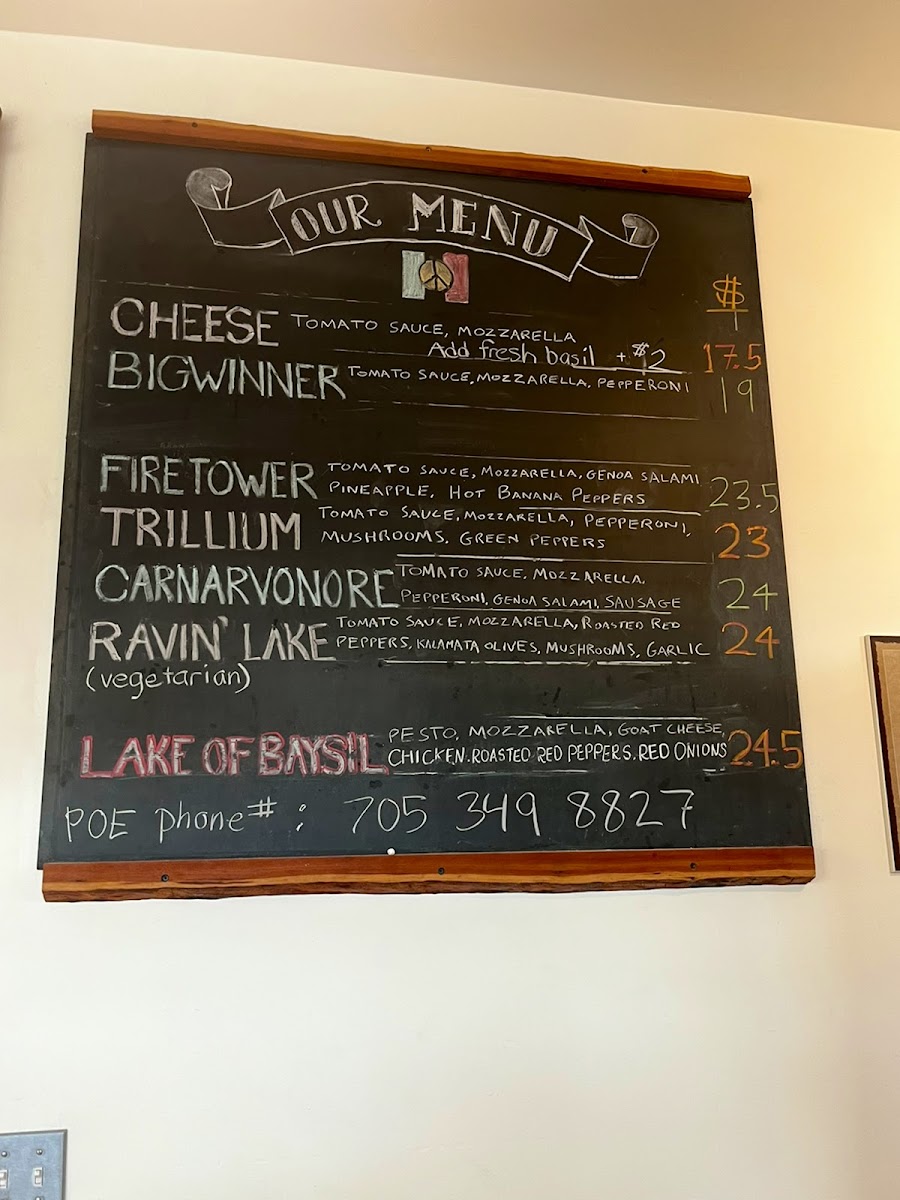 OUR MENU
$
CHEESE TOMATO SAUCE, MOZZARELLA
Add fresh basil + $2 17.5
BIGWINNER TOMATO SAUCE, MOZZARELLA, PEPPERONI 19
FIRETOWER TOMATO SAUCE, MOZZARELLA, GENOA SALAMI
PINEAPPLE, HOT BANANA PEPPERS 23.5
TRILLIUM TOMATO SAUCE, MOZZARELLA, PEPPERONI,
MUSHROOMS, GREEN PEPPERS 23
CARNARVONORE TOMATO SAUCE, MOZZARELLA,
PEPPERONI, GENOA SALAMI, SAUSAGE 24
RAVIN' LAKE TOMATO SAUCE, MOZZARELLA, ROASTED RED
PEPPERS, KALAMATA OLIVES, MUSHROOMS, GARLIC 24
(vegetarian)
LAKE OF BAYS'IL PESTO, MOZZARELLA, GOAT CHEESE,
CHICKEN, ROASTED RED PEPPERS, RED ONIONS 24.5
POE phone # : 705 349 8827